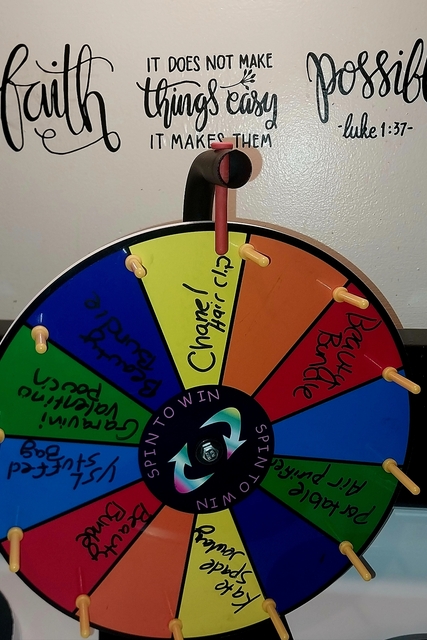 faith
IT DOES NOT MAKE
things easy
IT MAKES THEM
possib
-luke 1:37-
Chanel
Hair Clip
Beauty
Bundle
Portable
Air purifier
Kate
Spade
Beauty
Bundle
YSL
Stuffed
Bag
Garavini
Valentino
pouch
Beauty
Bundle
SPIN TO WIN
SPIN TO WIN
SPIN TO WIN